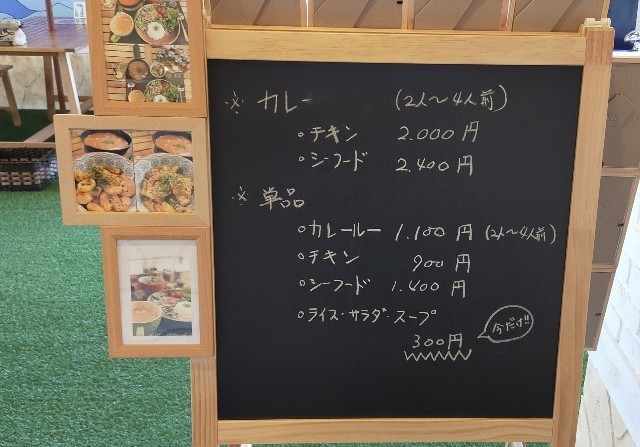 ※ カレー (2人～4人前)
○チキン 2.000円
○シーフード 2.400円
※ 単品
○カレールー 1.100円 (2人～4人前)
○チキン 900円
○シーフード 1.400円
○ライス・サラダ・スープ
300円 今だけ!!